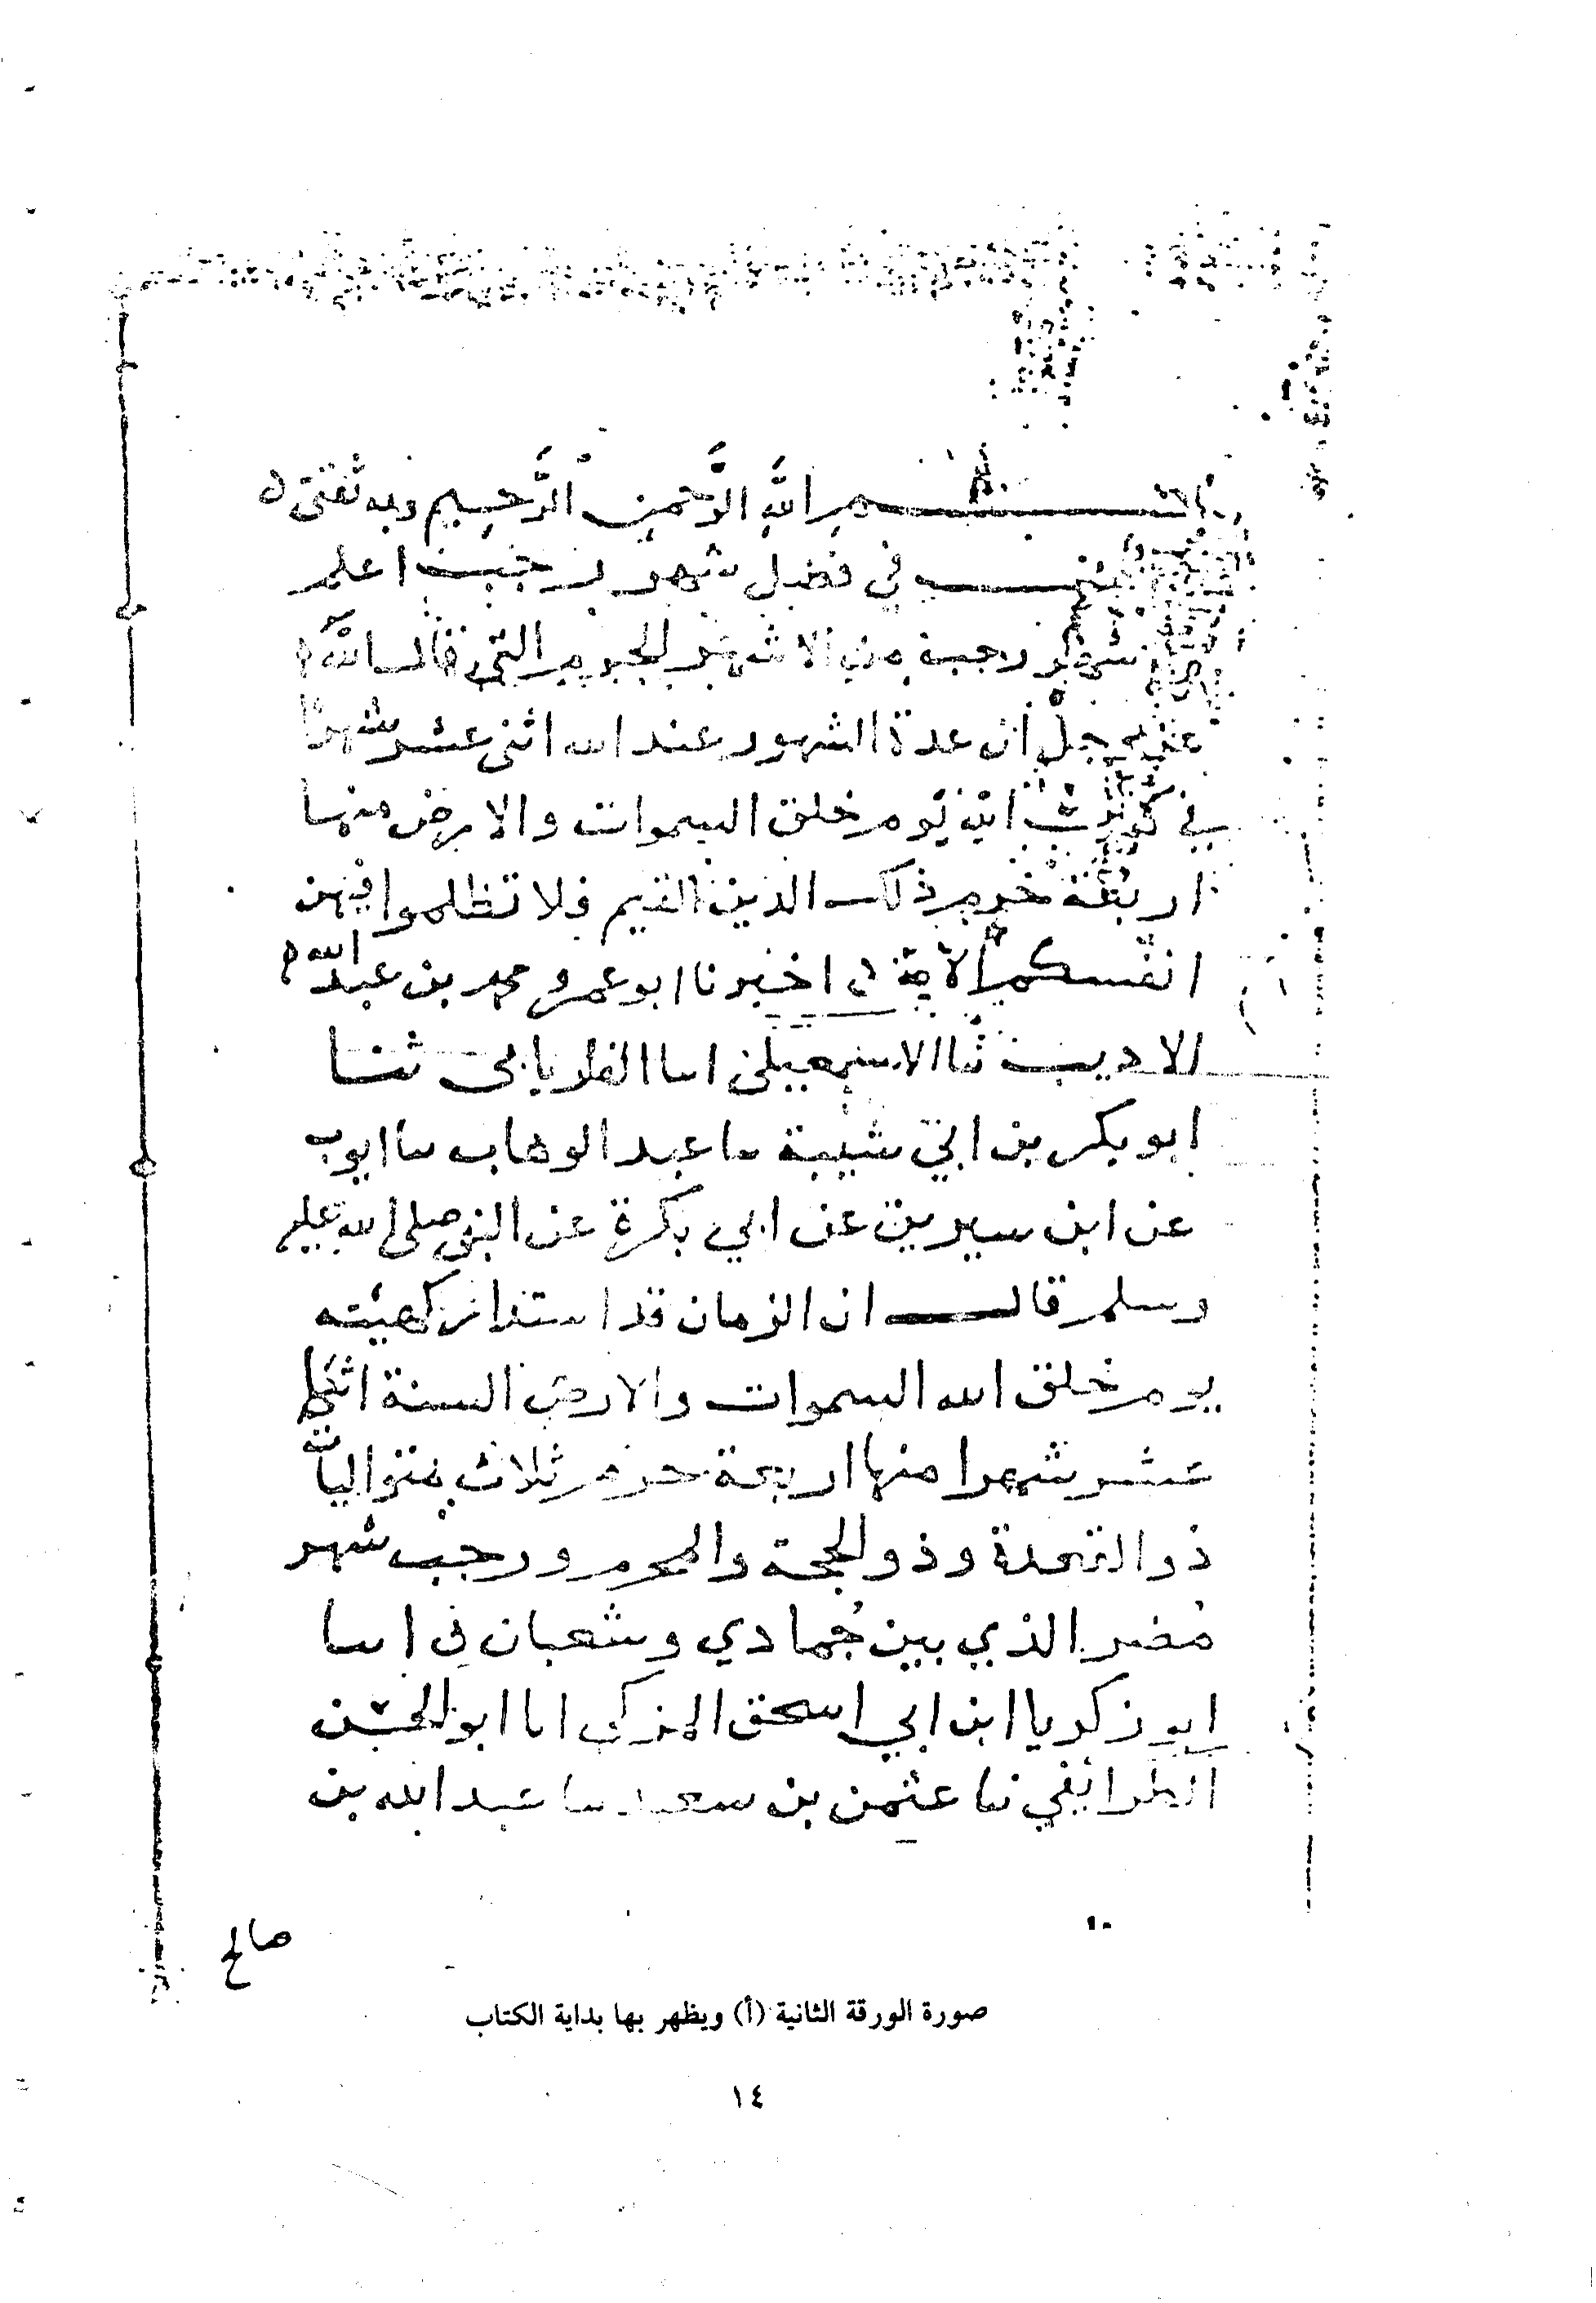 بسم الله الرحمن الرحيم وبه ثقتي
في فضل شهر رجب اعلم
شهر رجب من الاشهر الحرم التي قال الله
عز وجل ان عدة الشهور عند الله اثني عشر شهرا
في كتاب الله يوم خلق السموات والارض منها
اربعة حرم ذلك الدين القيم فلا تظلموا فيهن
انفسكم الآية اخبرنا ابو عمرو محمد بن عبد الله
الاديب ثنا الاسمعيلي انا الفاريابي ثنا
ابو بكر بن ابي شيبة ثنا عبد الوهاب ثنا ايوب
عن ابن سيرين عن ابي بكرة عن النبي صلى الله عليه
وسلم قال ان الزمان قد استدار كهيئته
يوم خلق الله السموات والارض السنة اثنى
عشر شهرا منها اربعة حرم ثلاث متواليات
ذو القعدة وذو الحجة والمحرم ورجب شهر
مضر الذي بين جمادي وشعبان انبا
ابو زكريا ابن ابي اسحق المزكي انا ابو الحسن
الطرايفي ثنا عثمن بن سعيد ثنا عبد الله بن
صالح
صورة الورقة الثانية (أ) ويظهر بها بداية الكتاب
١٤